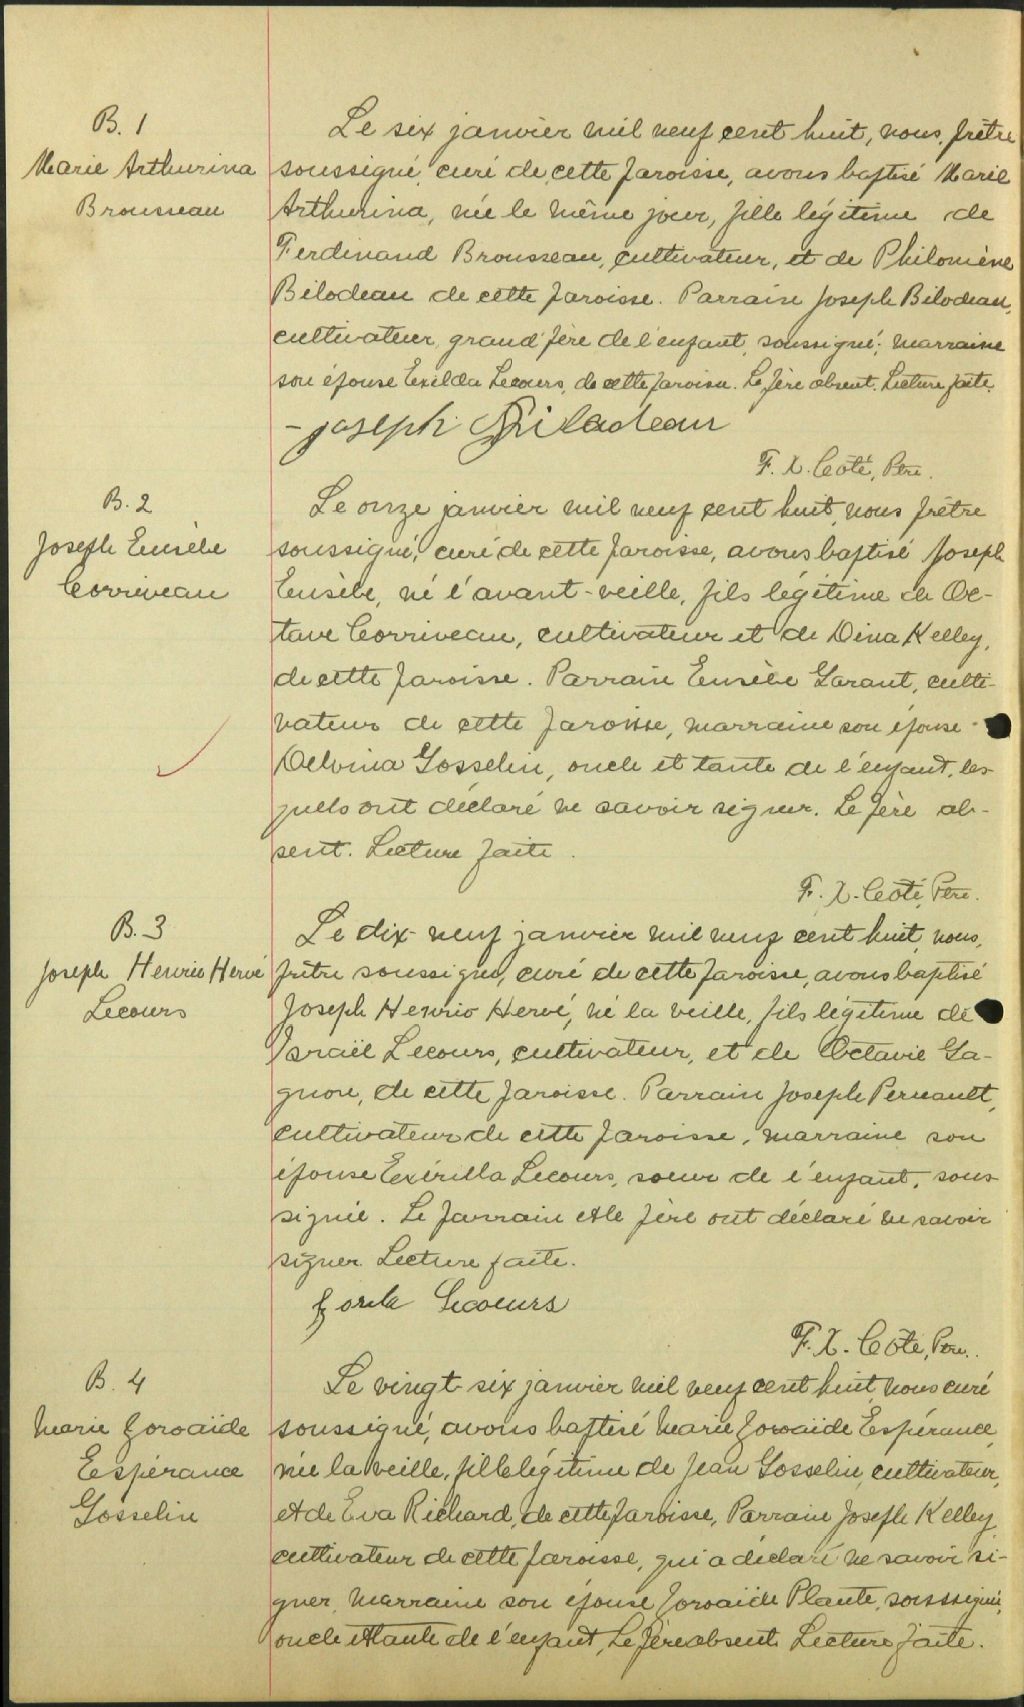 B. 1
Marie Arthurina
Brousseau
Le six janvier mil neuf cent huit, nous, prêtre
soussigné, curé de cette paroisse, avons baptisé Marie
Arthurina, née le même jour, fille légitime de
Ferdinand Brousseau, cultivateur, et de Philomène
Bilodeau de cette paroisse. Parrain Joseph Bilodeau,
cultivateur, grand'père de l'enfant, soussigné; marraine
son épouse Exilda Lecours, de cette paroisse. Le père absent. Lecture faite.
- joseph Biladeau
F. X. Côté, Ptre.
B. 2
Joseph Eusèbe
Corriveau
Le onze janvier mil neuf cent huit, nous prêtre
soussigné, curé de cette paroisse, avons baptisé Joseph
Eusèbe, né l'avant-veille, fils légitime de Oc-
tave Corriveau, cultivateur et de Dina Kelley,
de cette paroisse. Parrain Eusèbe Garant, culti-
vateur de cette paroisse, marraine son épouse
Delvina Gosselin, oncle et tante de l'enfant, les-
quels ont déclaré ne savoir signer. Le père ab-
sent. Lecture faite.
F. X. Côté, Ptre.
B. 3
Joseph Henrio Hervé
Lecours
Le dix-neuf janvier mil neuf cent huit, nous,
prêtre soussigné, curé de cette paroisse, avons baptisé
Joseph Henrio Hervé, né la veille, fils légitime de
Israël Lecours, cultivateur, et de Octavie Ga-
gnon, de cette paroisse. Parrain Joseph Perreault,
cultivateur de cette paroisse, marraine son
épouse Exérilla Lecours, soeur de l'enfant, sous-
signée. Le parrain et le père ont déclaré ne savoir
signer. Lecture faite.
Lecours
F. X. Côté, Ptre.
B. 4
Marie Zoroaïde
Espérance
Gosselin
Le vingt-six janvier mil neuf cent huit, nous curé
soussigné, avons baptisé Marie Zoroaïde Espérance,
née la veille, fille légitime de Jean Gosselin, cultivateur,
et de Eva Richard, de cette paroisse, Parrain Joseph Kelley,
cultivateur de cette paroisse, qui a déclaré ne savoir si-
gner, Marraine son épouse Zoroaïde Plante, soussignée,
oncle et tante de l'enfant, Le père absent. Lecture faite.